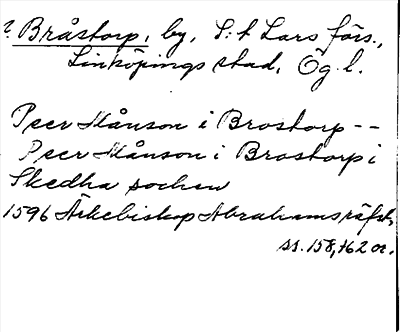 ? Bråstorp, by, S:t Lars förs.,
Linköpings stad, Ög. l.
Peer Månson i Brostorp --
Peer Månson i Brostorp i
Skedha sochen
1596 Ärkebiskop Abrahams räfst,
ss. 158, 162 o.